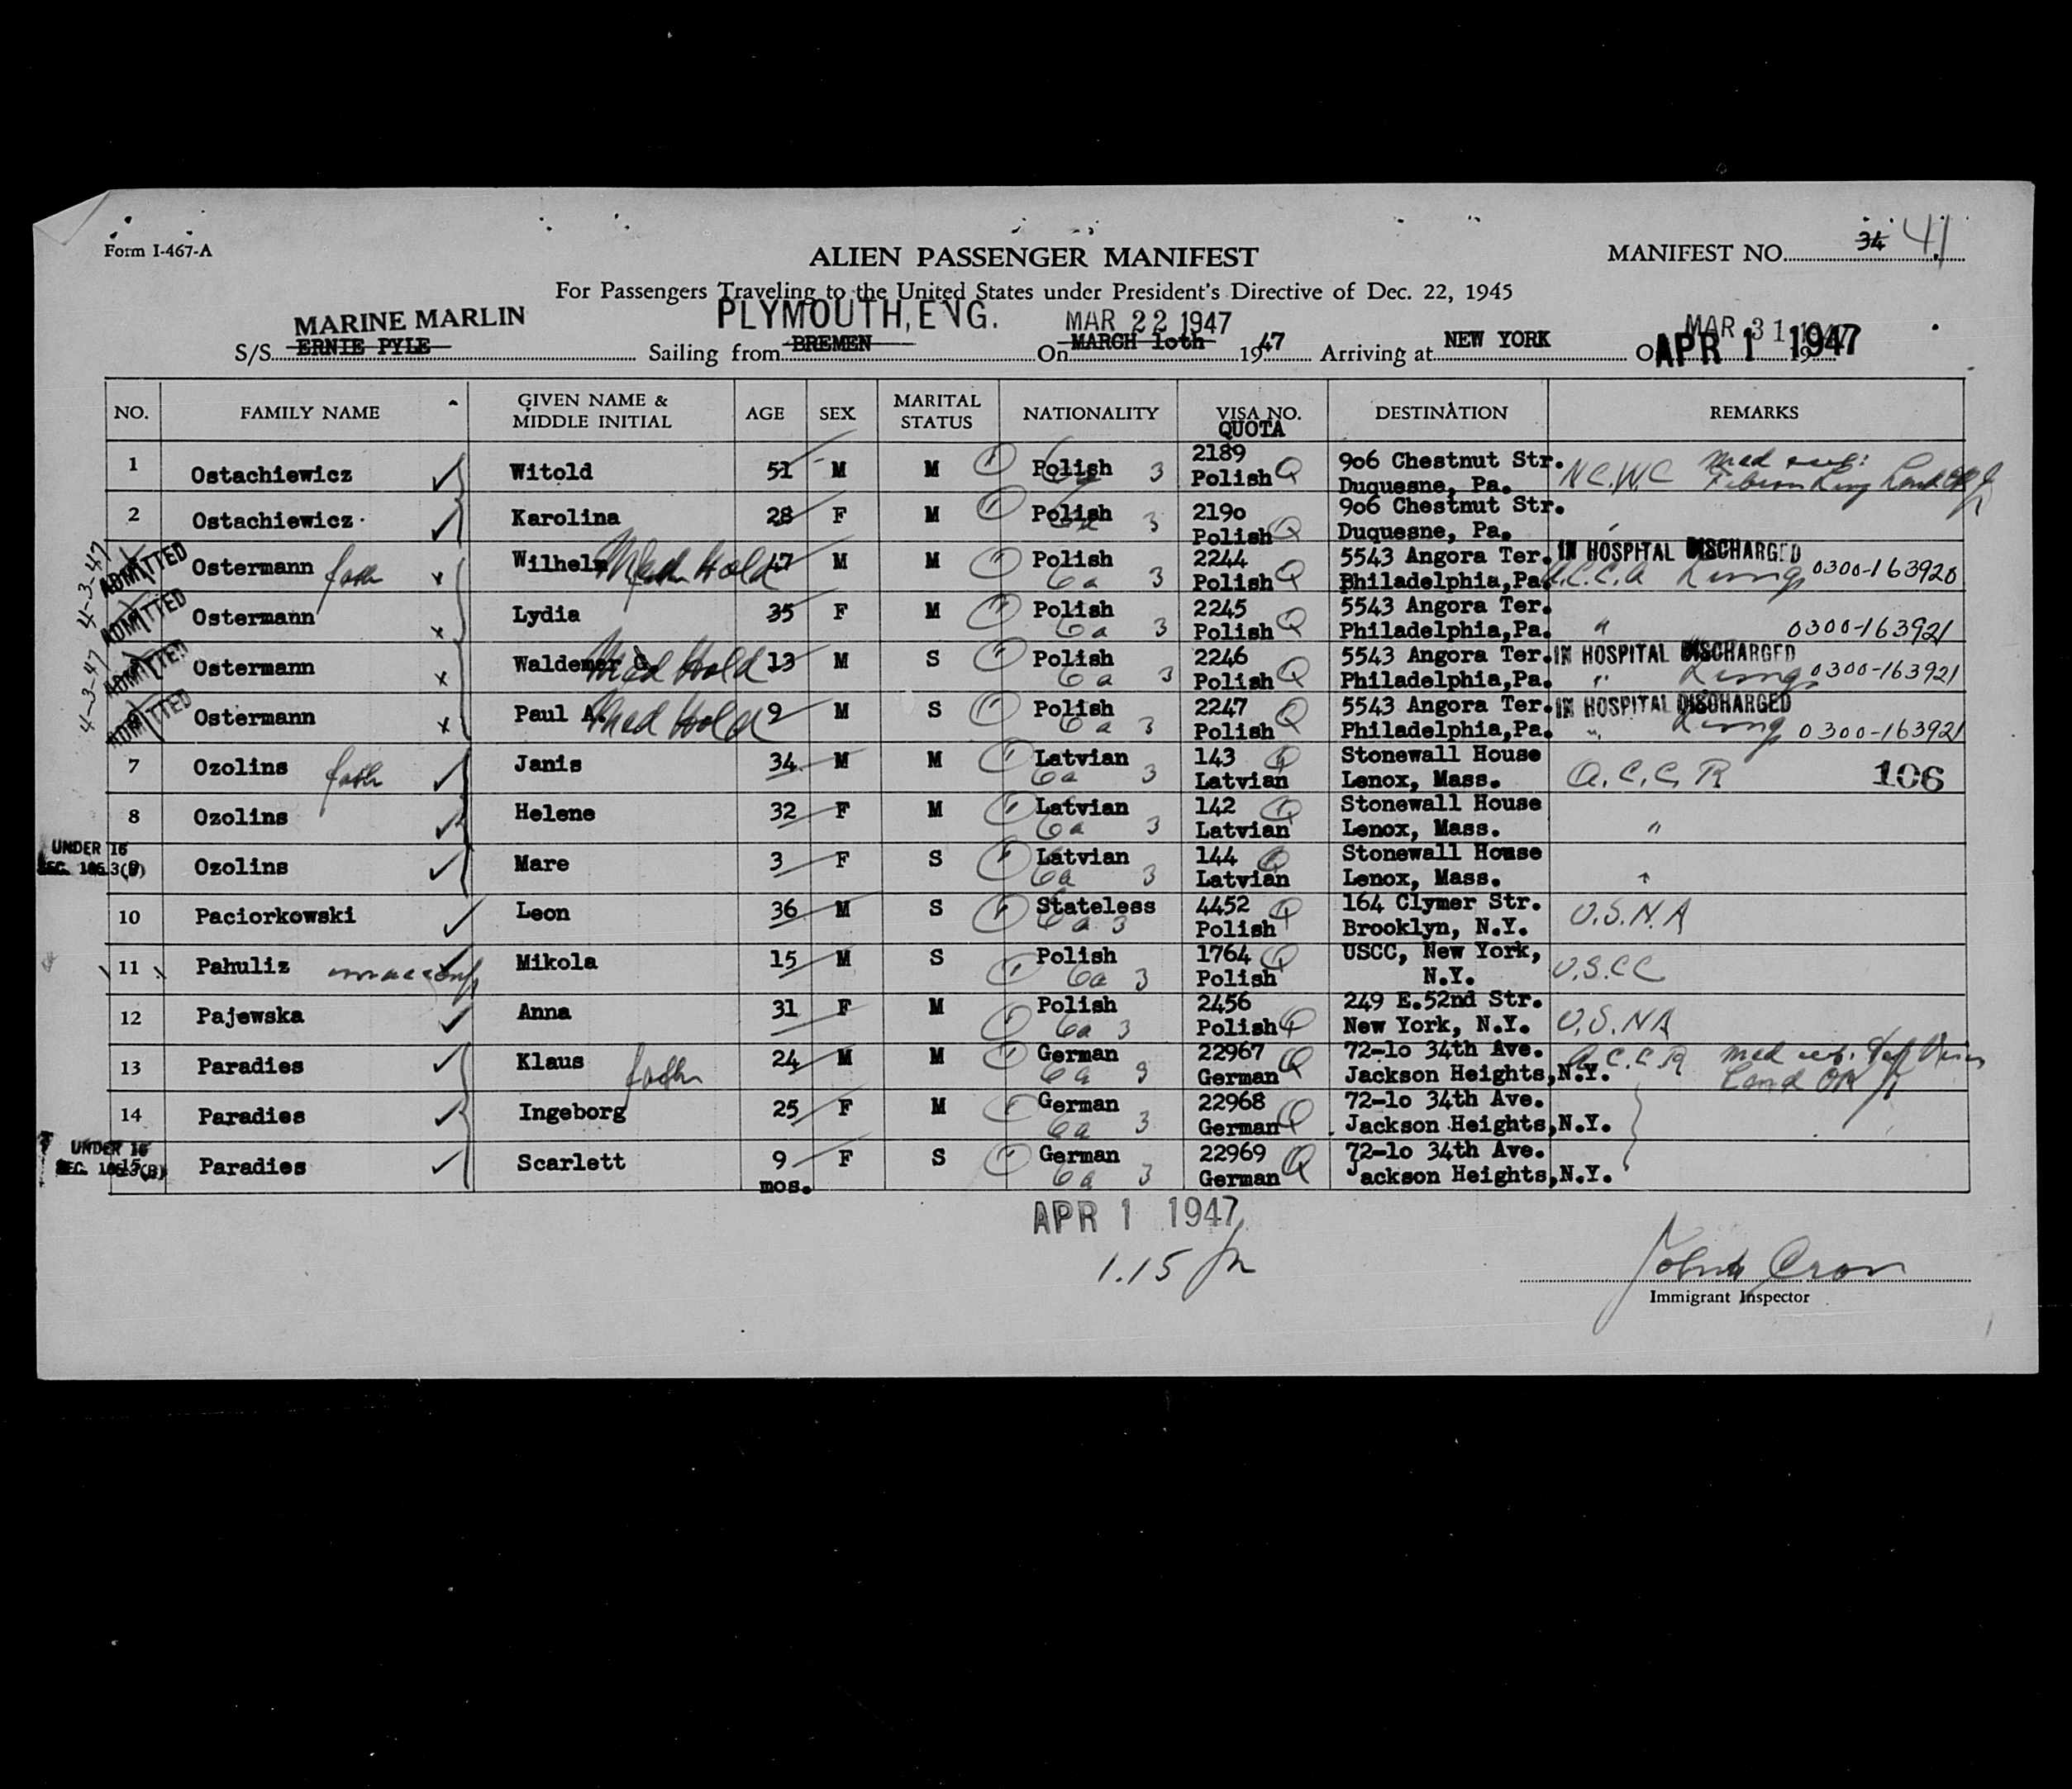 Form I-467-A
ALIEN PASSENGER MANIFEST
MANIFEST NO. 34 41
For Passengers Traveling to the United States under President's Directive of Dec. 22, 1945
MARINE MARLIN PLYMOUTH, ENG. MAR 22 1947 MAR 31 1947
S/S ERNIE PYLE Sailing from BREMEN On MARCH 1oth 1947 Arriving at NEW YORK On APR 1 1947
NO. FAMILY NAME GIVEN NAME & MIDDLE INITIAL AGE SEX MARITAL STATUS NATIONALITY VISA NO. QUOTA DESTINATION REMARKS
1 Ostachiewicz Witold 51 M M Polish 3 2189 Polish Q 906 Chestnut Str. Duquesne, Pa. N.C.W.C
2 Ostachiewicz Karolina 28 F M Polish 3 2190 Polish Q 906 Chestnut Str. Duquesne, Pa.
4-3-47 ADMITTED Ostermann x Wilhelm Med Hold 47 M M Polish 6a 3 2244 Polish Q 5543 Angora Ter. Philadelphia, Pa. IN HOSPITAL DISCHARGED 0300-163920
ADMITTED Ostermann x Lydia 35 F M Polish 6a 3 2245 Polish Q 5543 Angora Ter. Philadelphia, Pa. " 0300-163921
4-3-47 ADMITTED Ostermann x Waldemar G. Med Hold 13 M S Polish 6a 3 2246 Polish Q 5543 Angora Ter. Philadelphia, Pa. IN HOSPITAL DISCHARGED " 0300-163921
ADMITTED Ostermann x Paul A. Med Hold 9 M S Polish 6a 3 2247 Polish Q 5543 Angora Ter. Philadelphia, Pa. IN HOSPITAL DISCHARGED " 0300-163921
7 Ozolins Janis 34 M M Latvian 6a 3 143 Q Latvian Stonewall House Lenox, Mass. A.C.C.R 106
8 Ozolins Helene 32 F M Latvian 6a 3 142 Q Latvian Stonewall House Lenox, Mass. "
UNDER 16 SEC. 106.3(B) 9 Ozolins Mare 3 F S Latvian 6a 3 144 Q Latvian Stonewall House Lenox, Mass. "
10 Paciorkowski Leon 36 M S Stateless 6a 3 4452 Q Polish 164 Clymer Str. Brooklyn, N.Y. U.S.N.A
11 Pahuliz Mikola 15 M S Polish 6a 3 1764 Q Polish USCC, New York, N.Y. U.S.CC
12 Pajewska Anna 31 F M Polish 6a 3 2456 Polish Q 249 E.52nd Str. New York, N.Y. U.S.NA
13 Paradies Klaus 24 M M German 6a 3 22967 German Q 72-1o 34th Ave. Jackson Heights, N.Y. A.C.C.R
14 Paradies Ingeborg 25 F M German 6a 3 22968 German Q 72-1o 34th Ave. Jackson Heights, N.Y.
UNDER 16 SEC. 106.3(B) 15 Paradies Scarlett 9 mos. F S German 6a 3 22969 German Q 72-1o 34th Ave. Jackson Heights, N.Y.
APR 1 1947
1.15
Immigrant Inspector